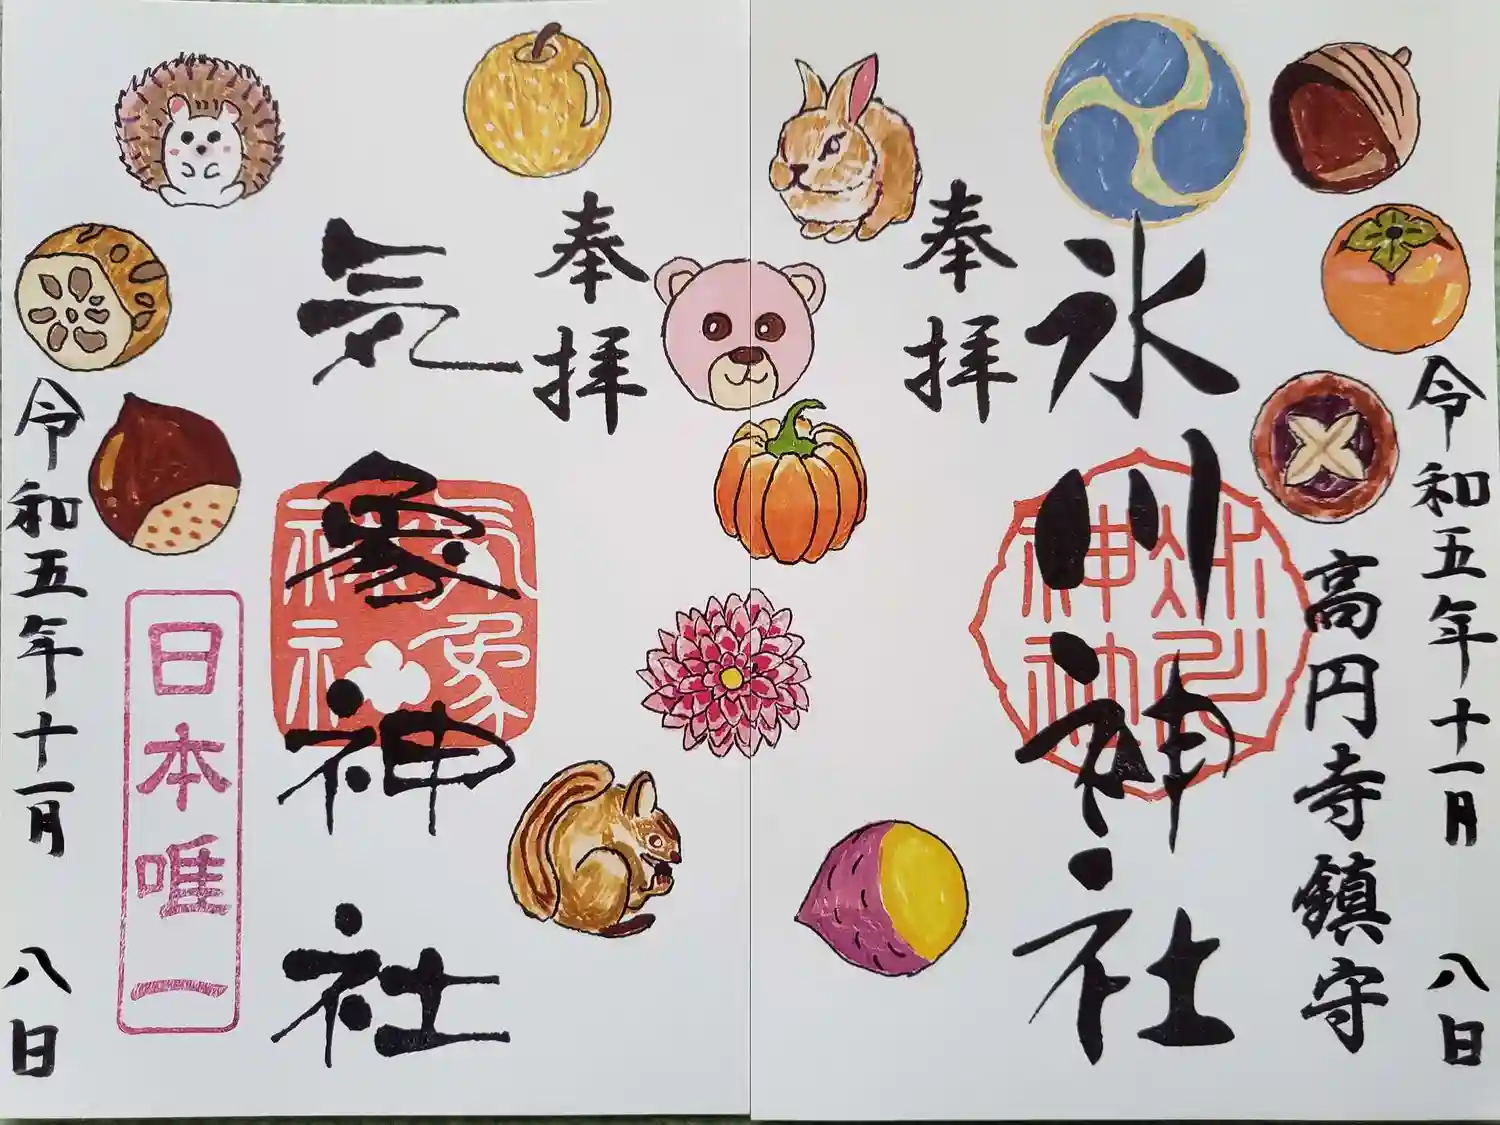 令和五年十一月 八日
高円寺鎮守
氷川神社
氷川神社
奉拝
奉拝
気象神社
気象神社
日本唯一
令和五年十一月 八日